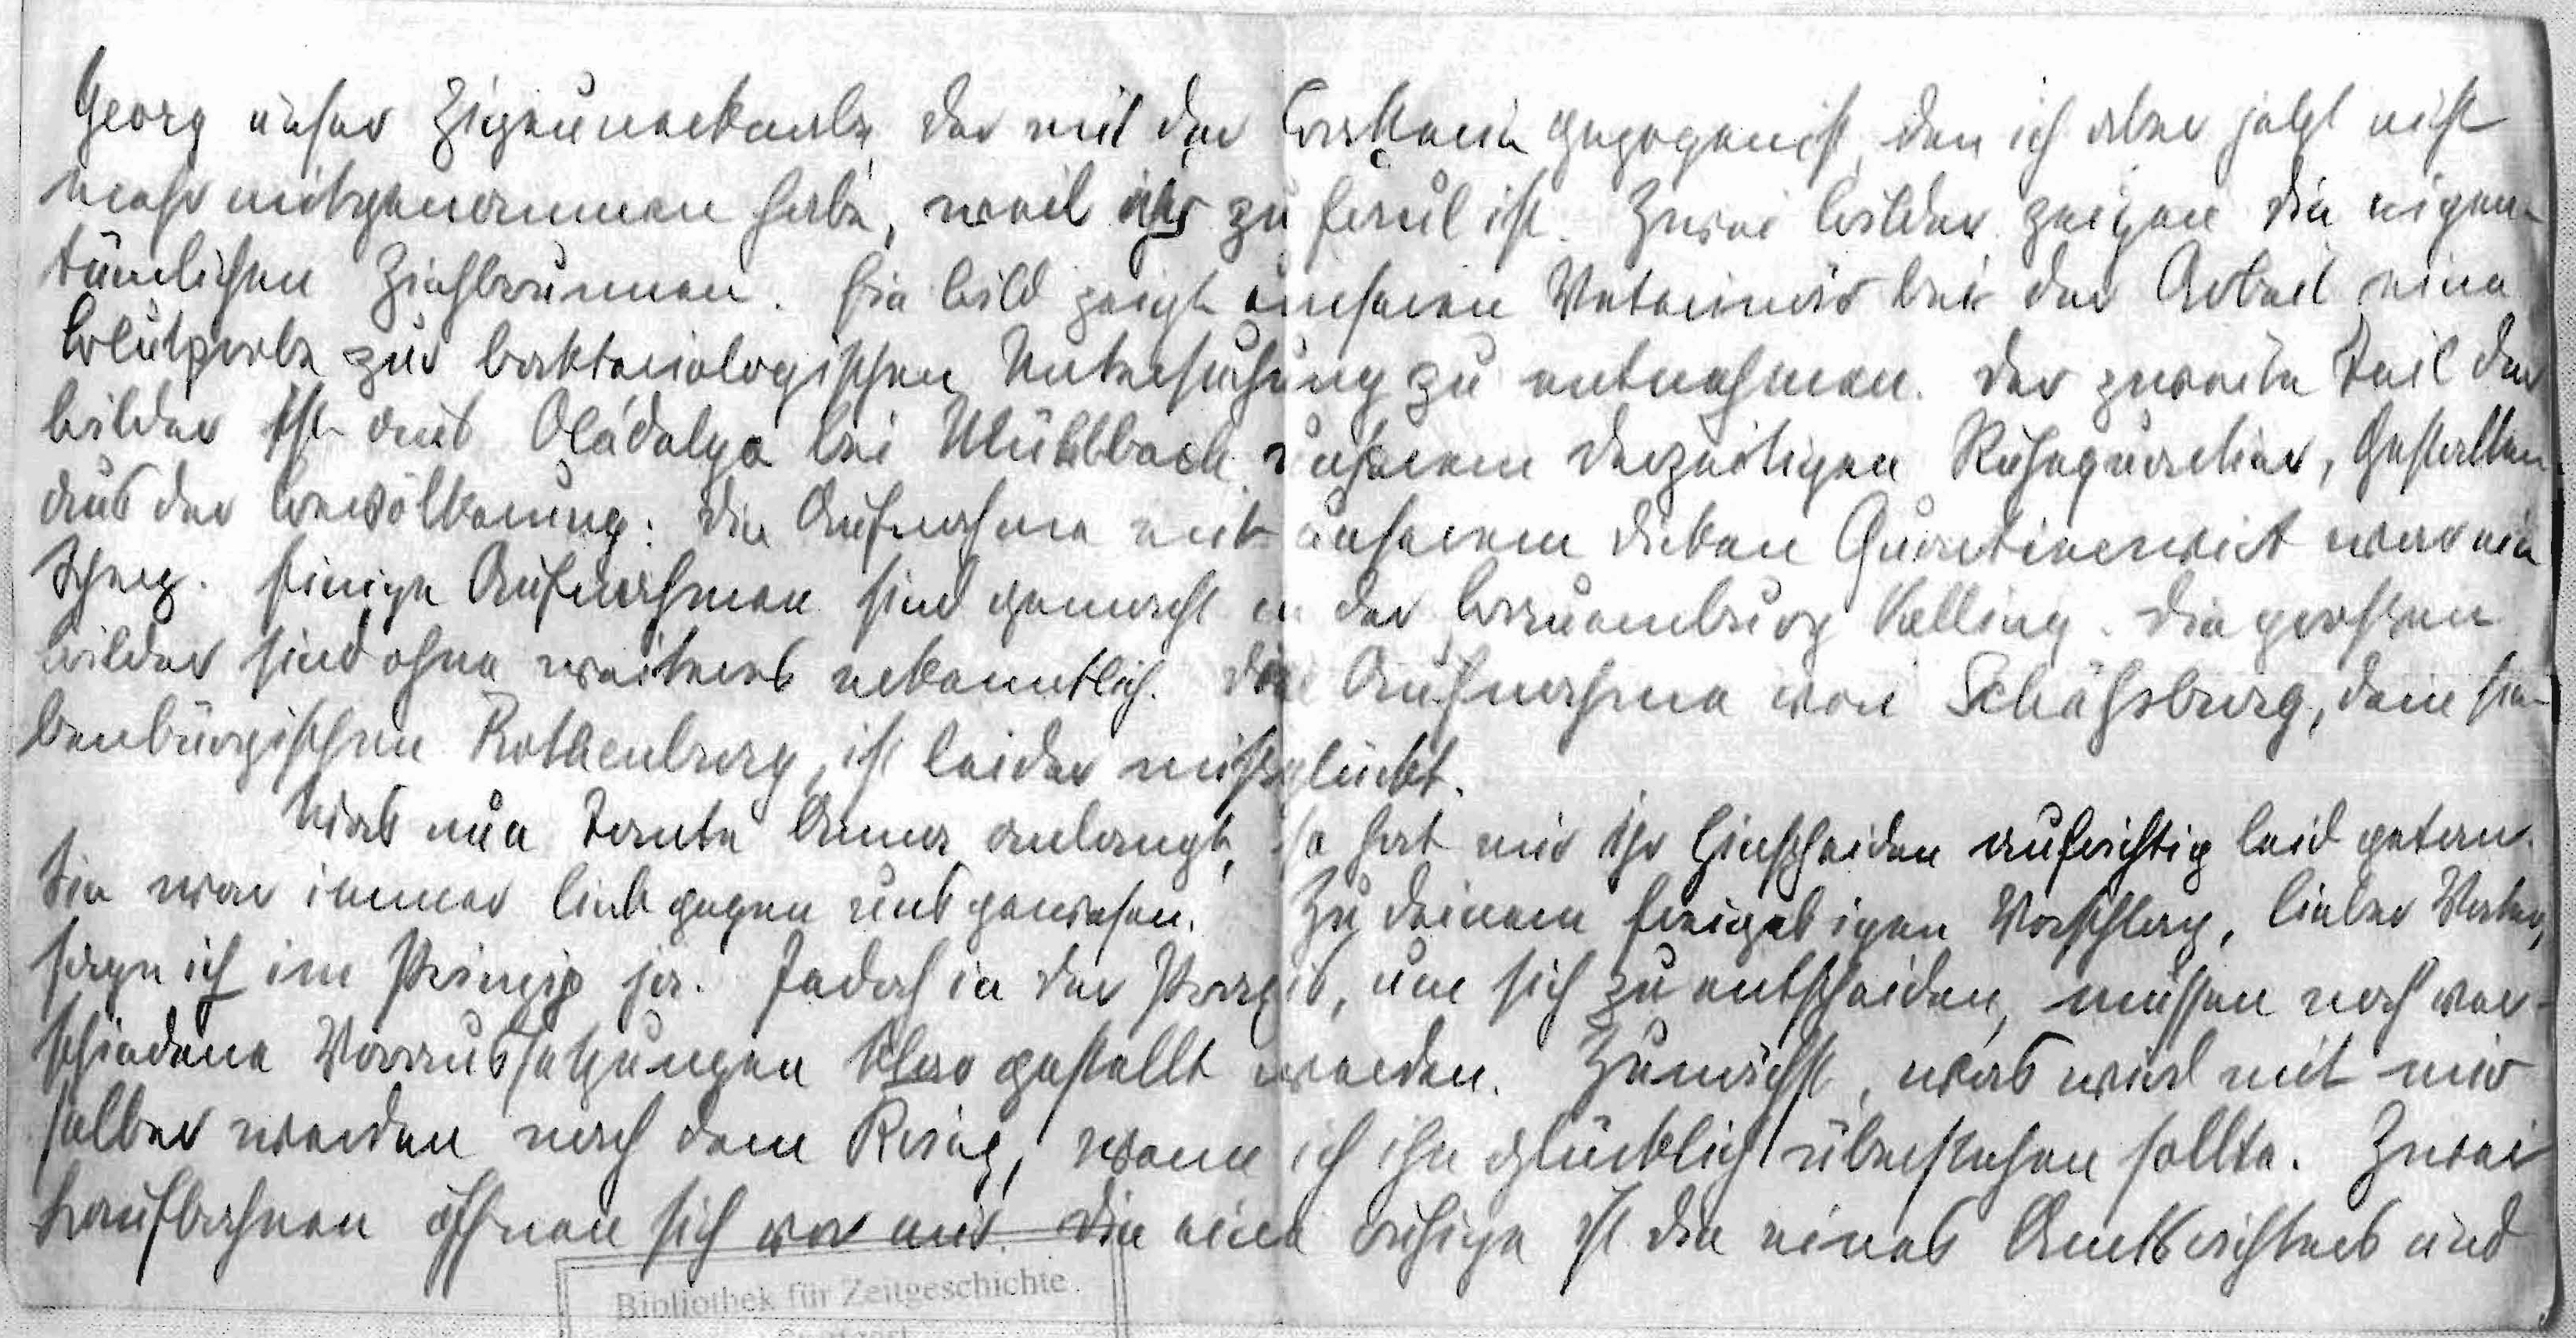 Georg unser Zigeunerknabe, der mit der Batterie gezogen ist, den ich aber jetzt nicht
mehr mitgenommen habe, weil er zu faul ist. Zwei Bilder zeigen die eigen-
tümlichen Ziehbrunnen. Ein Bild zeigt unseren Veterinär bei der Arbeit eine
Blutprobe zur bakteriologischen Untersuchung zu entnehmen. Der zweite Teil der
Bilder ist aus Oládalya bei Mühlbach unserem derzeitigen Ruhequartier, Gestalten
aus der Bevölkerung: Die Aufnahme mit unserem dicken Quartierwirt war ein
Scherz. Einige Aufnahmen sind gemacht in der Bauernburg Kelling. Die grossen
Bilder sind ohne weiteres erkenntlich. Die Aufnahme von Schäßburg, dem sie-
benbürgischen Rothenburg, ist leider missglückt.
Was nun Tante Anna anlangt, so hat mir ihr Hinscheiden aufrichtig leid getan.
Sie war immer lieb gegen uns gewesen. Zu deinem freigebigen Vorschlag, lieber Vater,
sage ich im Prinzip ja. Jedoch in der Praxis, um sich zu entscheiden, müssen noch ver-
schiedene Voraussetzungen klar gestellt werden. Zunächst, was wird mit mir
selber werden nach dem Krieg, wenn ich ihn glücklich überstehen sollte. Zwei
Laufbahnen öffnen sich vor mir. Die eine ruhige ist die eines Amtsrichters und
Bibliothek für Zeitgeschichte